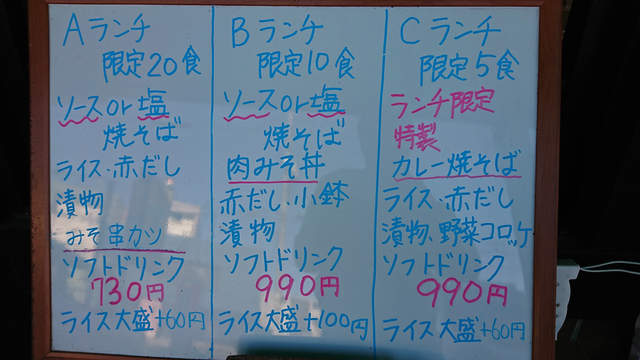 Aランチ
限定20食
ソースor塩
焼そば
ライス・赤だし
漬物
みそ串カツ
ソフトドリンク
730円
ライス大盛+60円
Bランチ
限定10食
ソースor塩
焼そば
肉みそ丼
赤だし・小鉢
漬物
ソフトドリンク
990円
ライス大盛+100円
Cランチ
限定5食
ランチ限定
特製
カレー焼そば
ライス・赤だし
漬物、野菜コロッケ
ソフトドリンク
990円
ライス大盛+60円